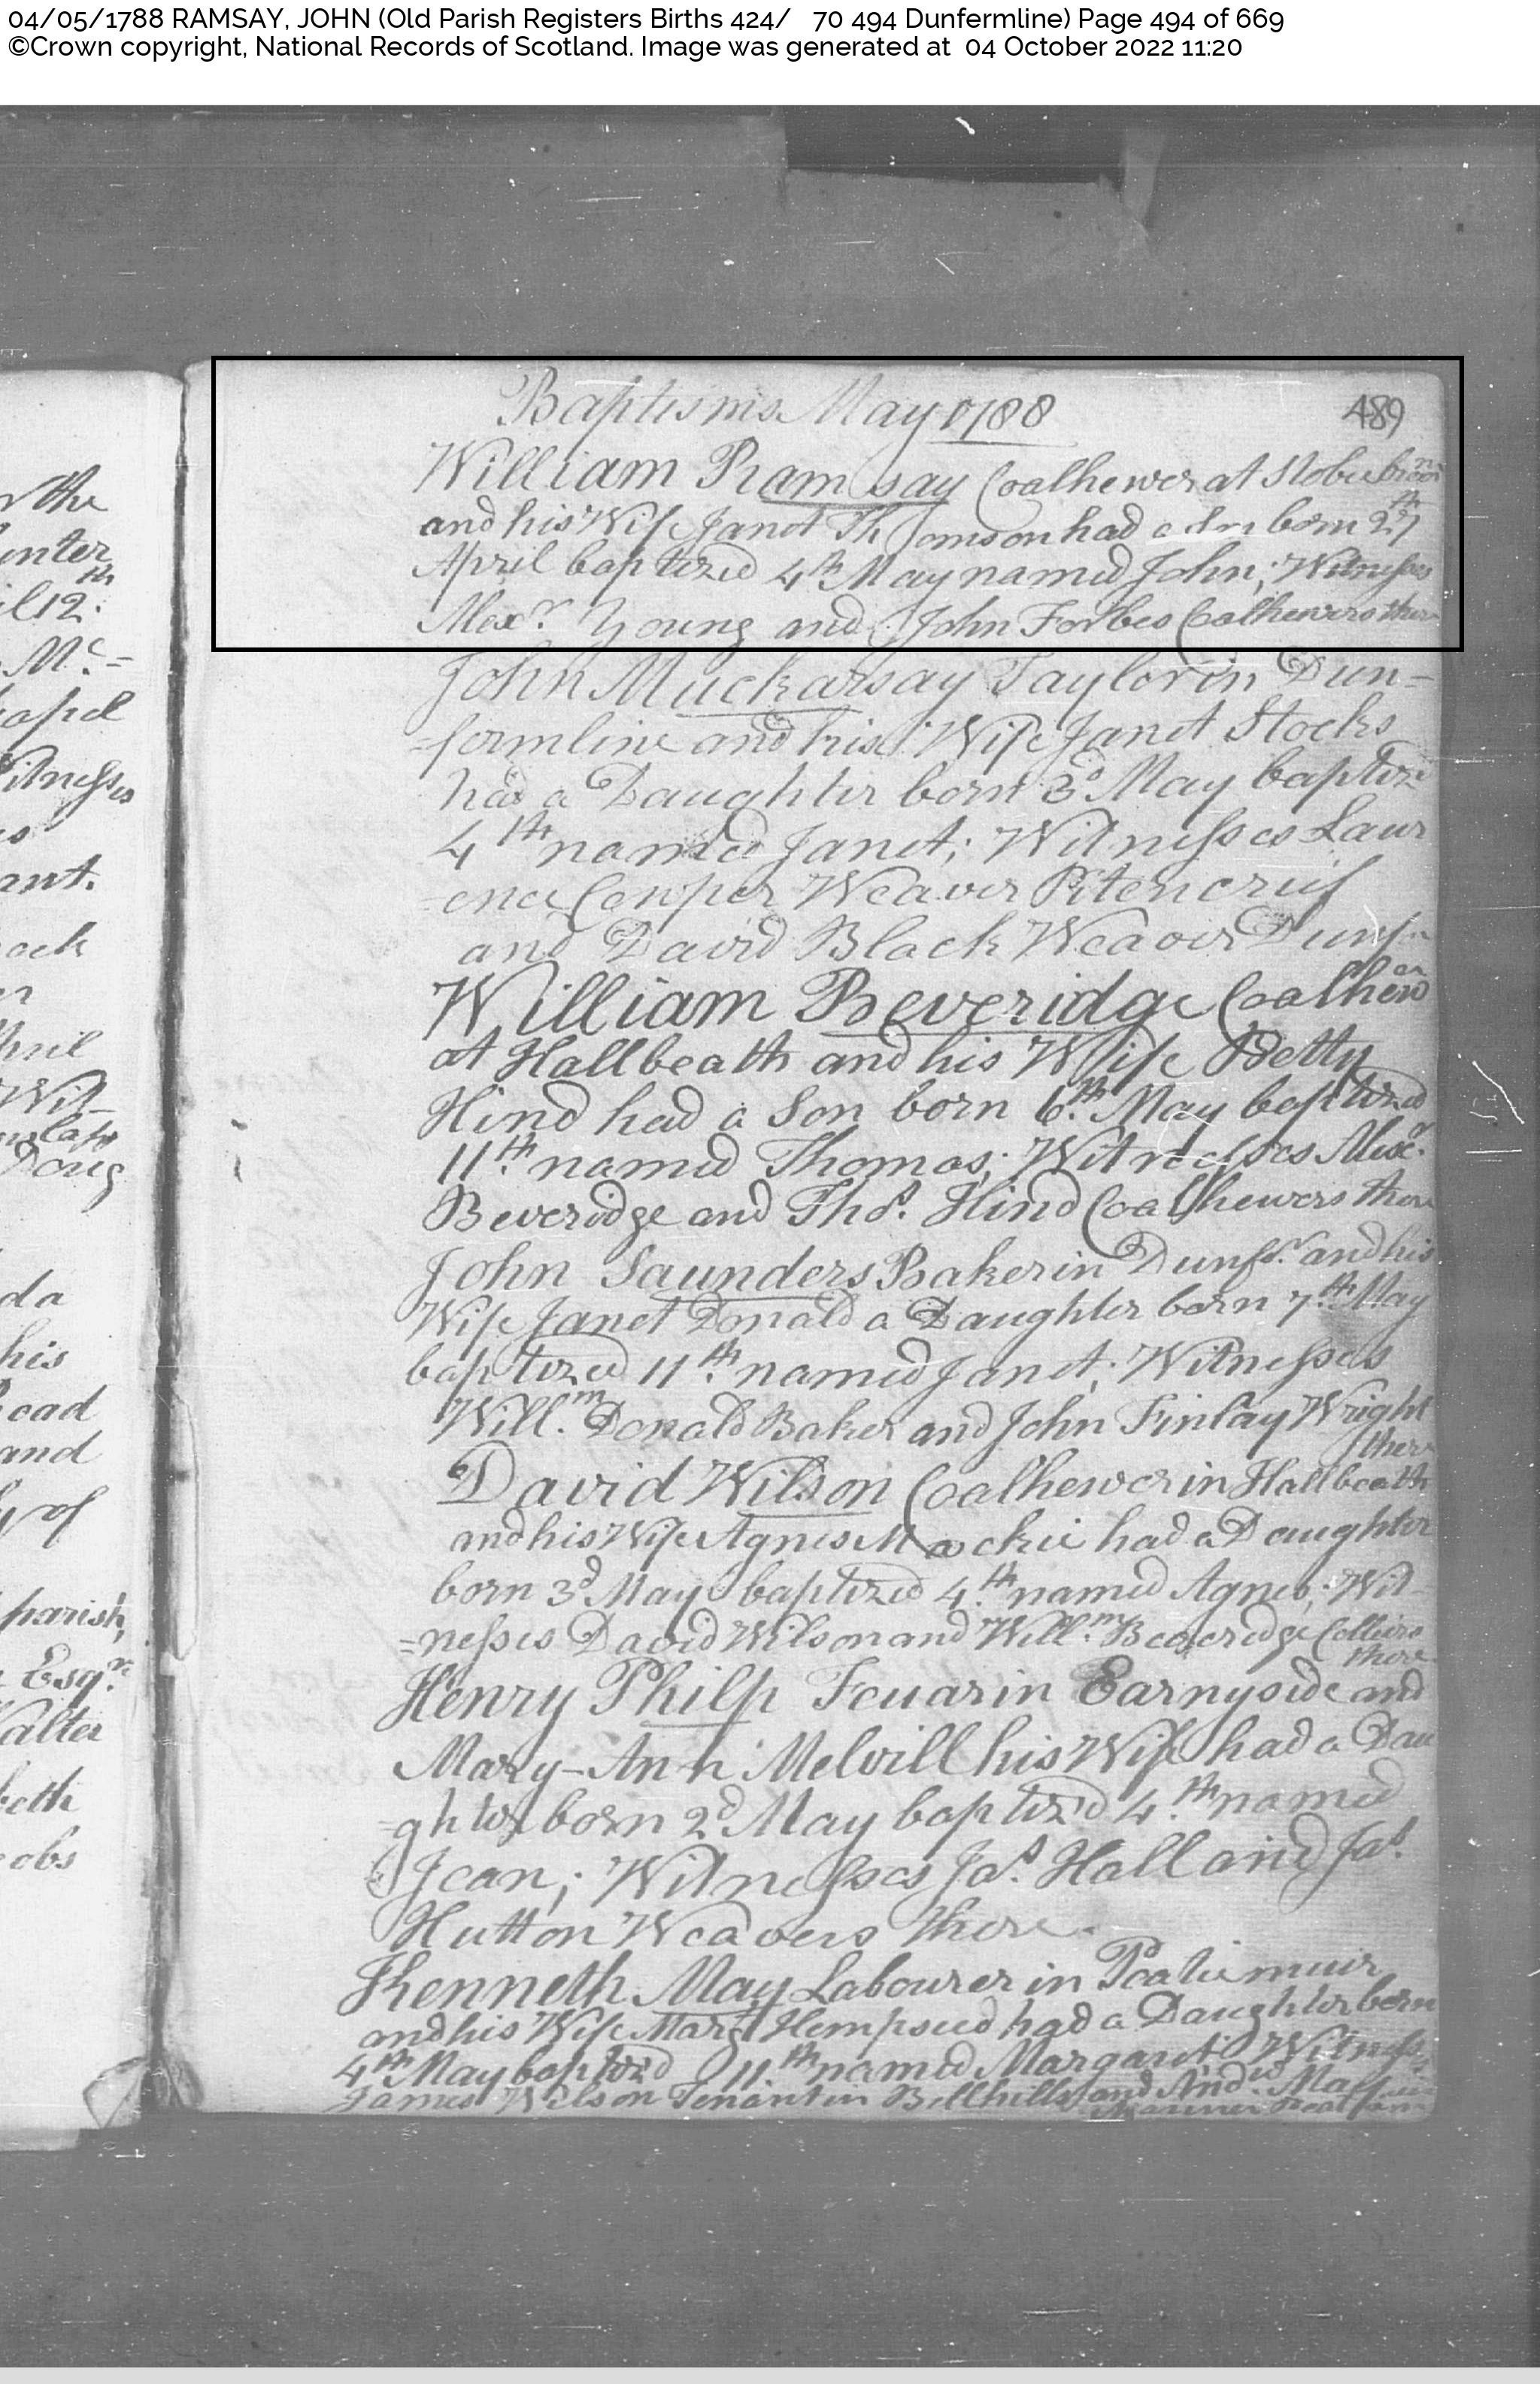 04/05/1788 RAMSAY, JOHN (Old Parish Registers Births 424/ 70 494 Dunfermline) Page 494 of 669
©Crown copyright, National Records of Scotland. Image was generated at 04 October 2022 11:20
Baptisms May 1788
489
William Ramsay Coalhewer at
and his Wife Janet Thomson had a Son born 27th
April baptized 4th May named John; Witnesses
Alexr. Young and John Forbes Coalhewers there
John Muckarsay Taylor in Dun=
=fermline and his Wife Janet Stocks
had a Daughter born 3d May baptize
4th named Janet; Witnesses Laur
=ence Cowper Weaver Pitencrief
and David Black Weaver Dunfn
William Beveridge Coalhewer
at Hallbeath and his Wife Betty
Hind had a Son born 6th. May baptized
11th. named Thomas; Witnesses Alexr.
Beveridge and Thos. Hind Coalhewers there
John Saunders Baker in Dunfr. and his
Wife Janet Donald a Daughter born 7th. May
baptized 11th. named Janet; Witnesses
Will.m Donald Baker and John Finlay Wright
there
David Wilson Coalhewer in Hallbeath
and his Wife Agnes Mackie had a Daughter
born 3d May baptized 4.th named Agnes; Wit-
=nesses David Wilson and Will.m Beveridge Colliers
there
Henry Philp Feuar in Earnyside and
Mary-Ann Melvill his Wife had a Dau
=ghter born 2d May baptized 4.th named
Jean; Witnesses Jas. Hall and Jas.
Hutton Weavers there.
Khenneth May Labourer in Peatiemuir
and his Wife Margt Hempseed had a Daughter born
4th May baptized 11th named Margaret; Witness.
James Wilson Tenant in Bellhills and Andw.
the
unter
il 12th.
Mc.=
apel
Witnesses
ant.
ack
pril
Wit-
Doug
da
his
ead
and
of
parish,
Esqr.
Walter
beth
obs